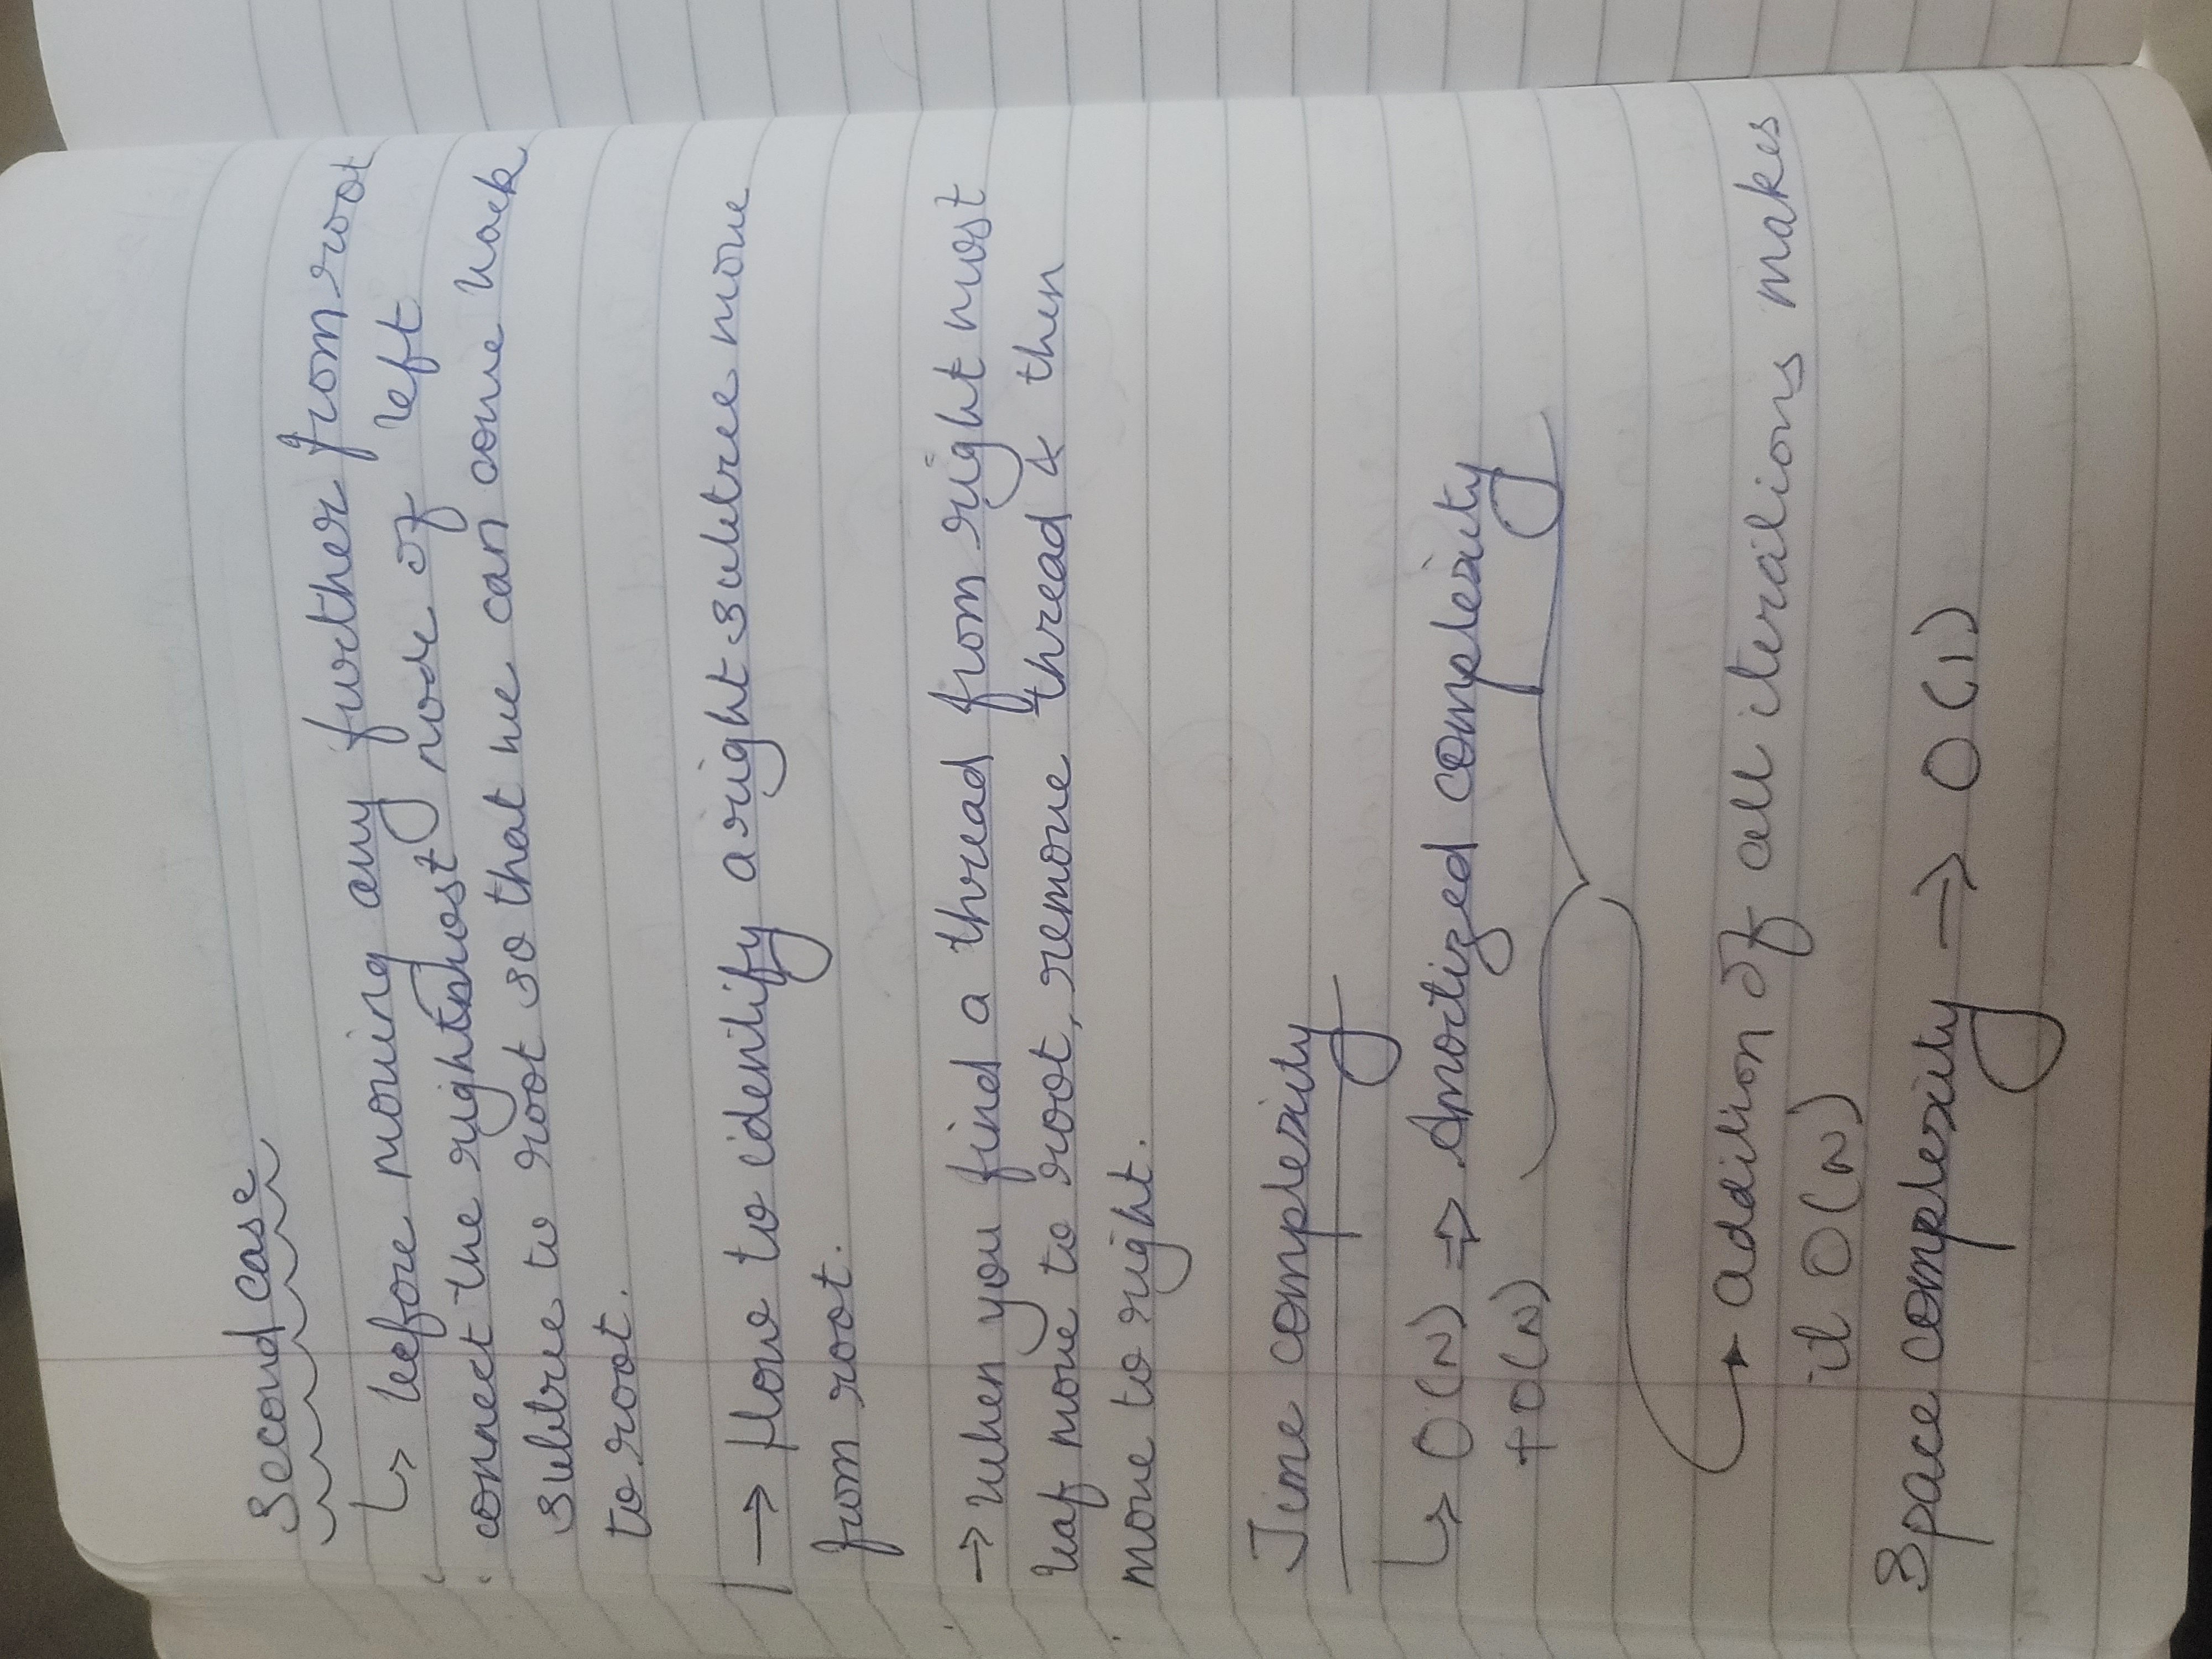 Second case
↳ before moving any further from root
connect the rightmost node of left
subtree to root so that we can come back
to root.
→ How to identify a right subtree move
from root.
→ When you find a thread from right most
leaf move to root, remove thread & then
move to right.
Time complexity
↳ O(N) ⇒ Amortized complexity
+O(N)
→ addition of all iterations makes
it O(N)
Space complexity → O(1)